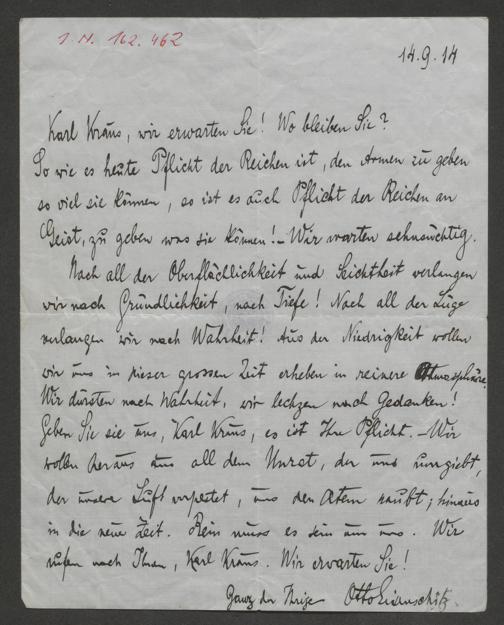 I. N. 162.462
14.9.14
Karl Kraus, wir erwarten Sie! Wo bleiben Sie?
So wie es heute Pflicht der Reichen ist, den Armen zu geben
so viel sie können, so ist es auch Pflicht der Reichen an
Geist, zu geben was sie können! – Wir warten sehnsüchtig.
Nach all der Oberflächlichkeit und Seichtheit verlangen
wir nach Gründlichkeit, nach Tiefe! Nach all der Lüge
verlangen wir nach Wahrheit! Aus der Niedrigkeit wollen
wir uns in dieser grossen Zeit erheben in reinere Athmosphäre.
Wir dürsten nach Wahrheit, wir lechzen nach Gedanken!
Geben Sie sie uns, Karl Kraus, es ist Ihre Pflicht. – Wir
wollen heraus aus all dem Unrat, der uns umgiebt,
der unsere Luft verpestet, uns den Atem raubt; hinaus
in die neue Zeit. Rein muss es sein um uns. Wir
rufen nach Ihnen, Karl Kraus. Wir erwarten Sie!
Ganz der Ihrige Otto Eisenschitz.